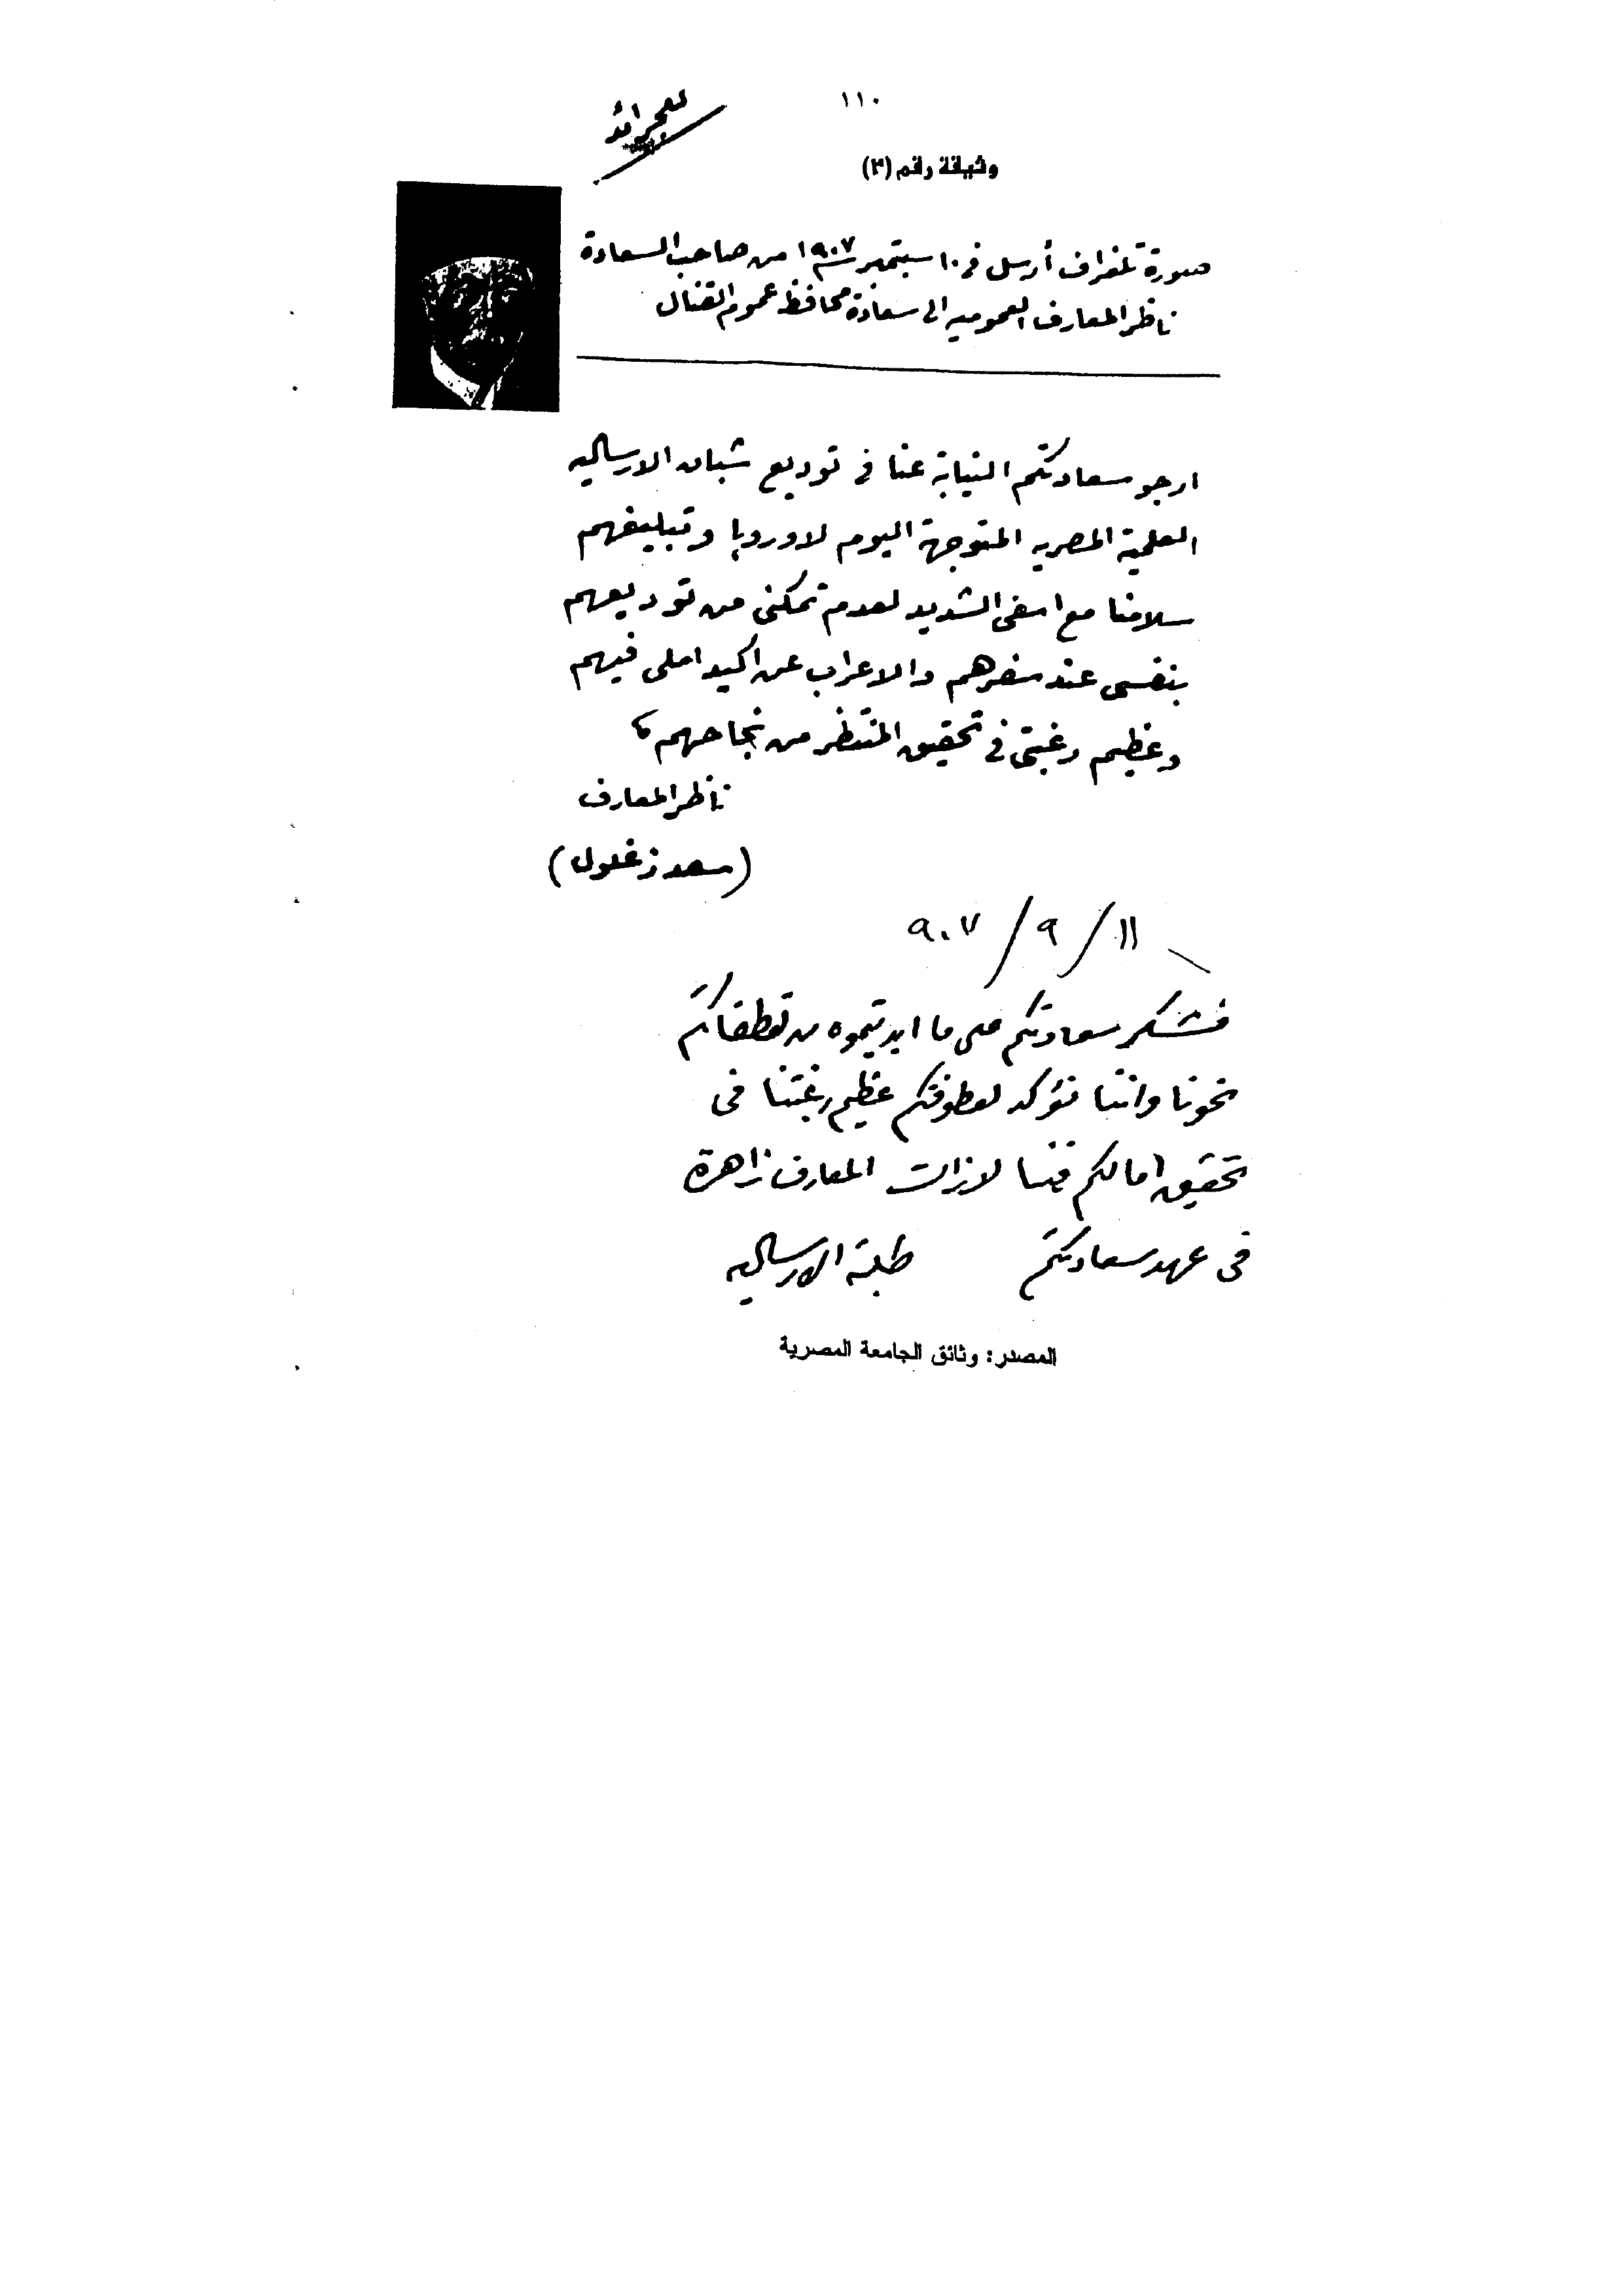 ١١٠
للجرائد
وثيقة رقم (٣)
صورة تلغراف أرسل فى ١٠ سبتمبر سنة ١٩٠٧ من صاحب السعادة
ناظر المعارف العموميه الى سعادة محافظ عموم القنال
ارجو سعادتكم النيابة عنا فى توديع شبان الارساليه
العلمية المصريه المتوجهة اليوم لاوروبا وتبليغهم
سلامنا مع اسفى الشديد لعدم تمكنى من توديعهم
بنفسى عند سفرهم والاعراب عن اكيد املى فيهم
وعظيم رغبتى فى تحقيق المنتظر من نجاحهم
ناظر المعارف
(سعد زغلول)
١١/٩/٩٠٧
نشكر سعادتكم على ما ابديتموه من تعطفاتكم
نحونا واننا نؤكد لعطوفتكم عظيم رغبتنا فى
تحقيق امالكم فينا لازالت المعارف زاهرة
فى عهد سعادتكم طلبة الارساليه
المصدر: وثائق الجامعة المصرية